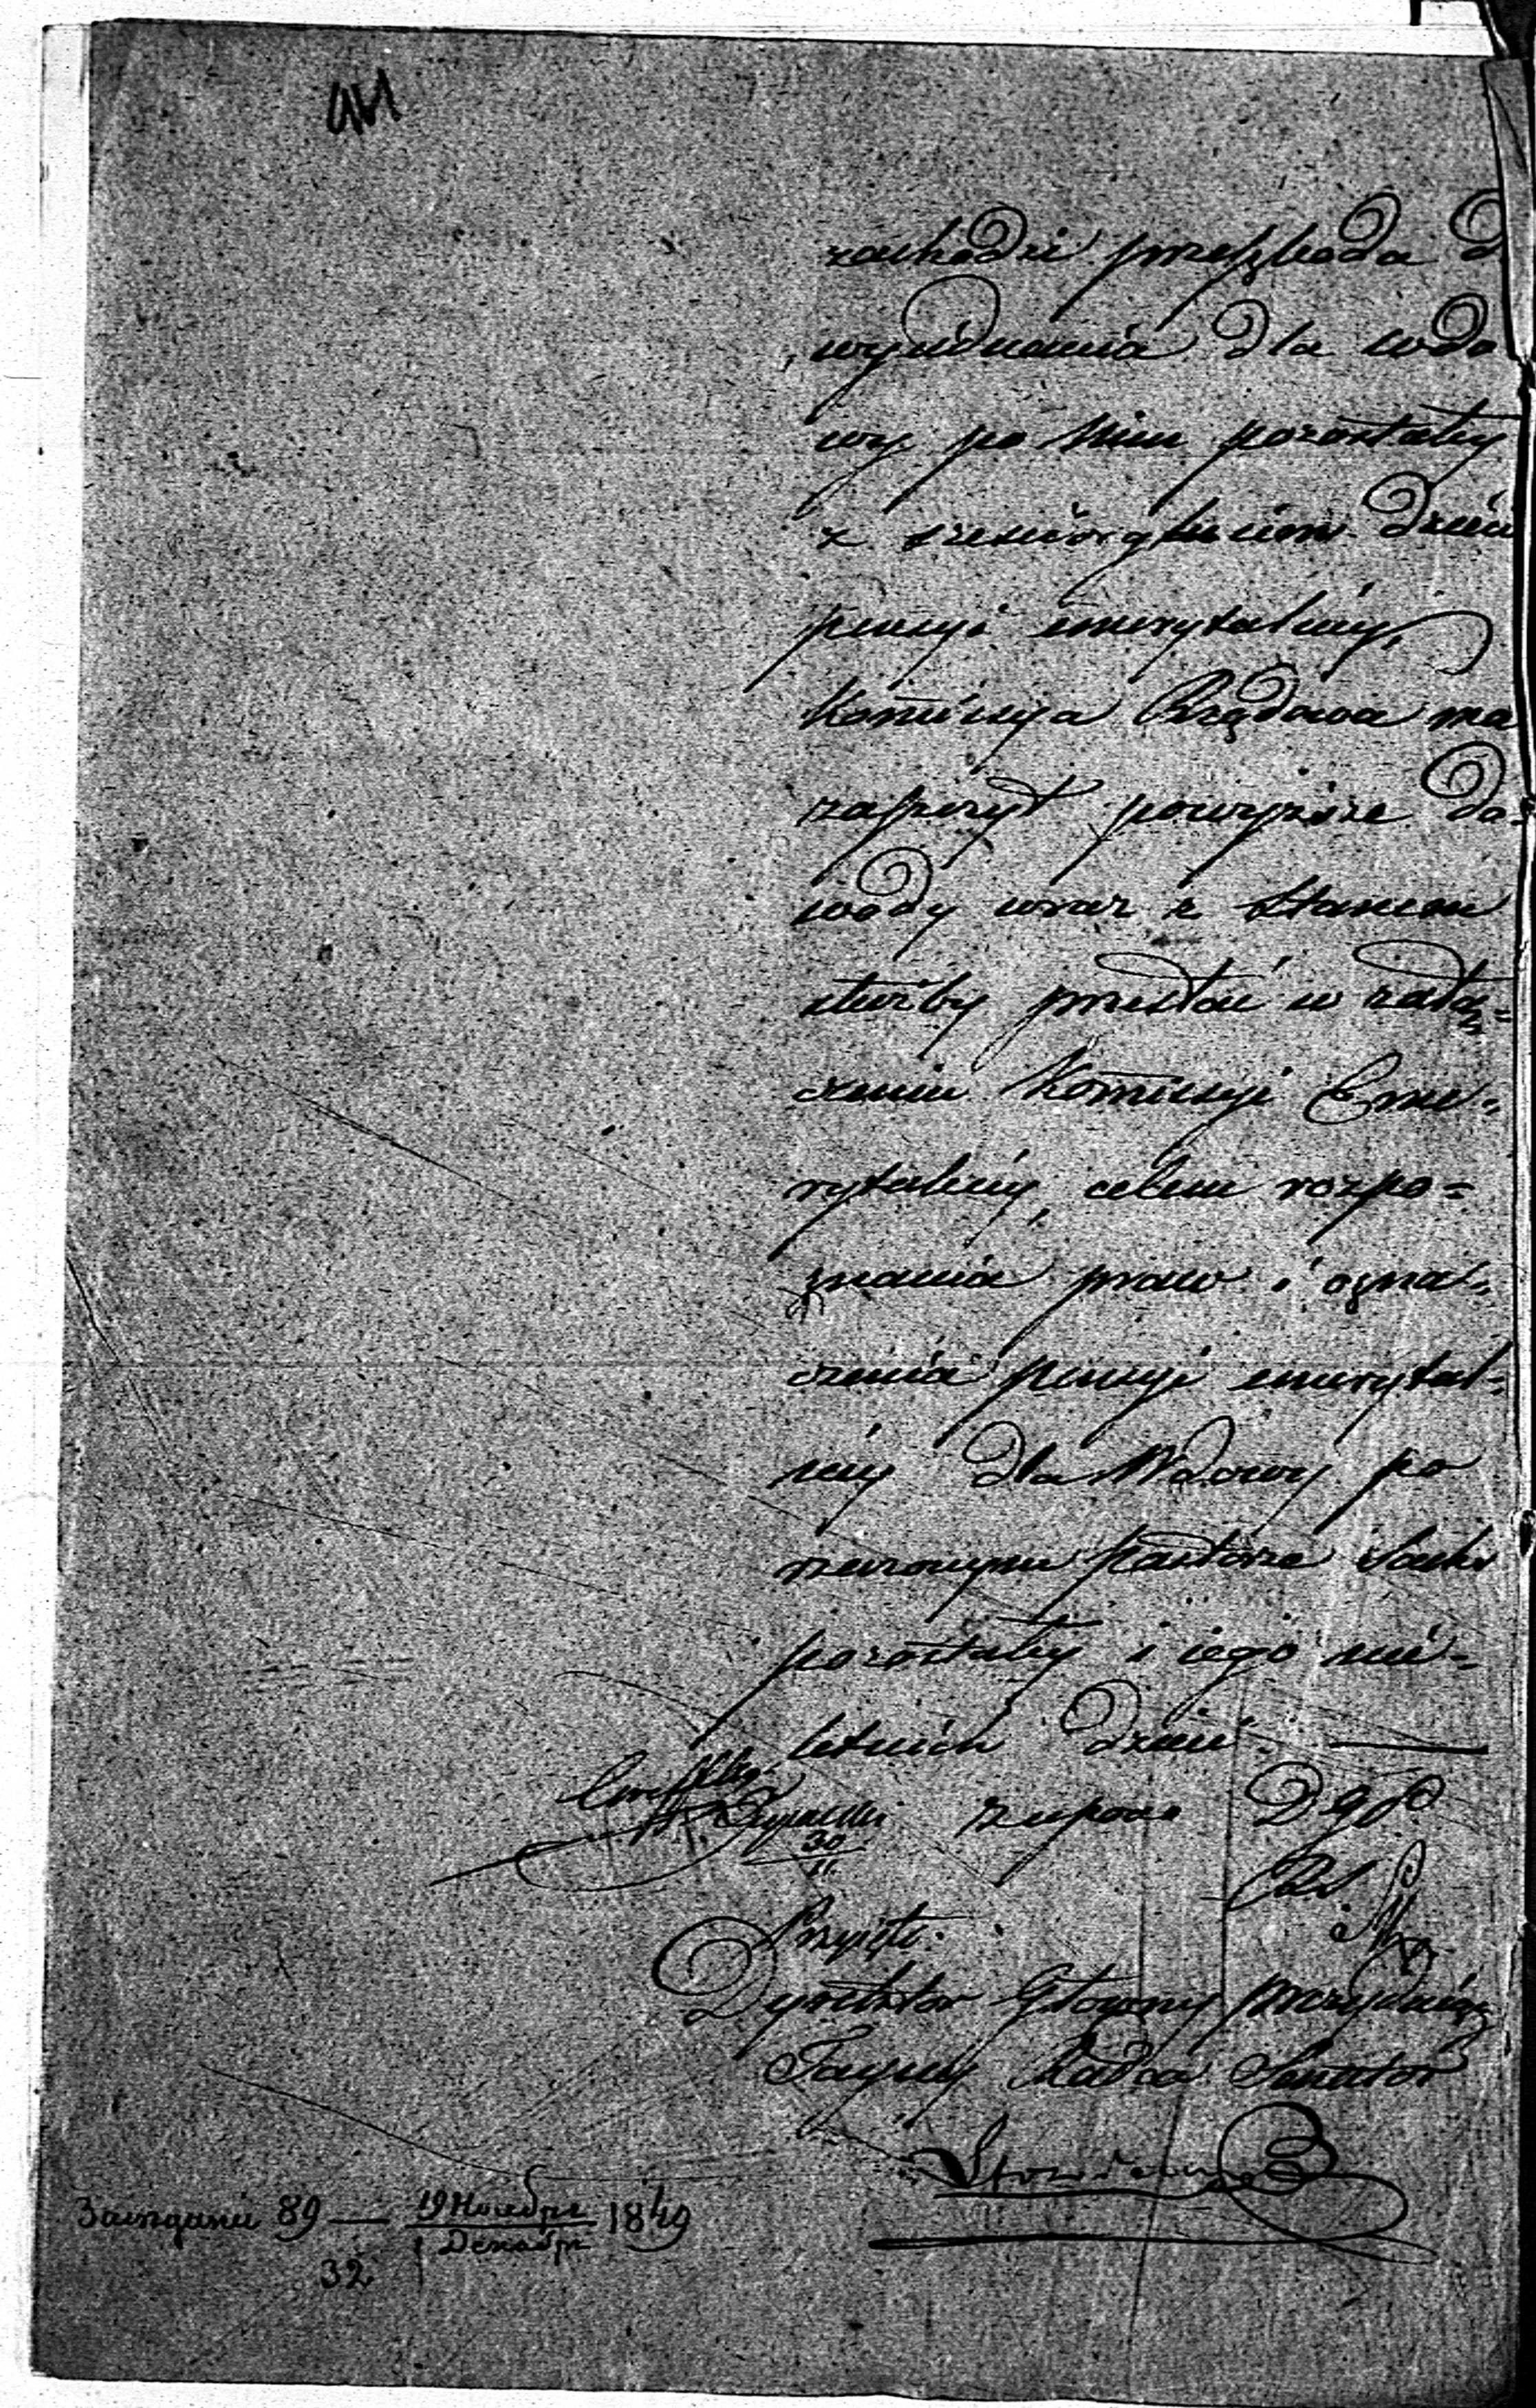 zachodzi przeszkoda d
wyiednania dla wdo
wy po Nim pozostałey
z sześciorgkiem dzieci
pensyi emerytalney,
Kommissya Rządowa ma
zaszczyt powyższe do-
wody wraz z stanem
służby przesłać w załą-
czeniu Kommissyi Eme-
rytalney, celem rozpo-
znania praw i ozna-
czenia pensyi emerytal-
ney dla Wdowy po
rzeczonym Pastorze Sachs
pozostałey i iego nie-
letnich dzieci.
30
11
Przyięto.
Dyrektor Główny Prezyduiący
Tayny Radca Senator
89 — 19 Ноября 1849
1 Декабря
32